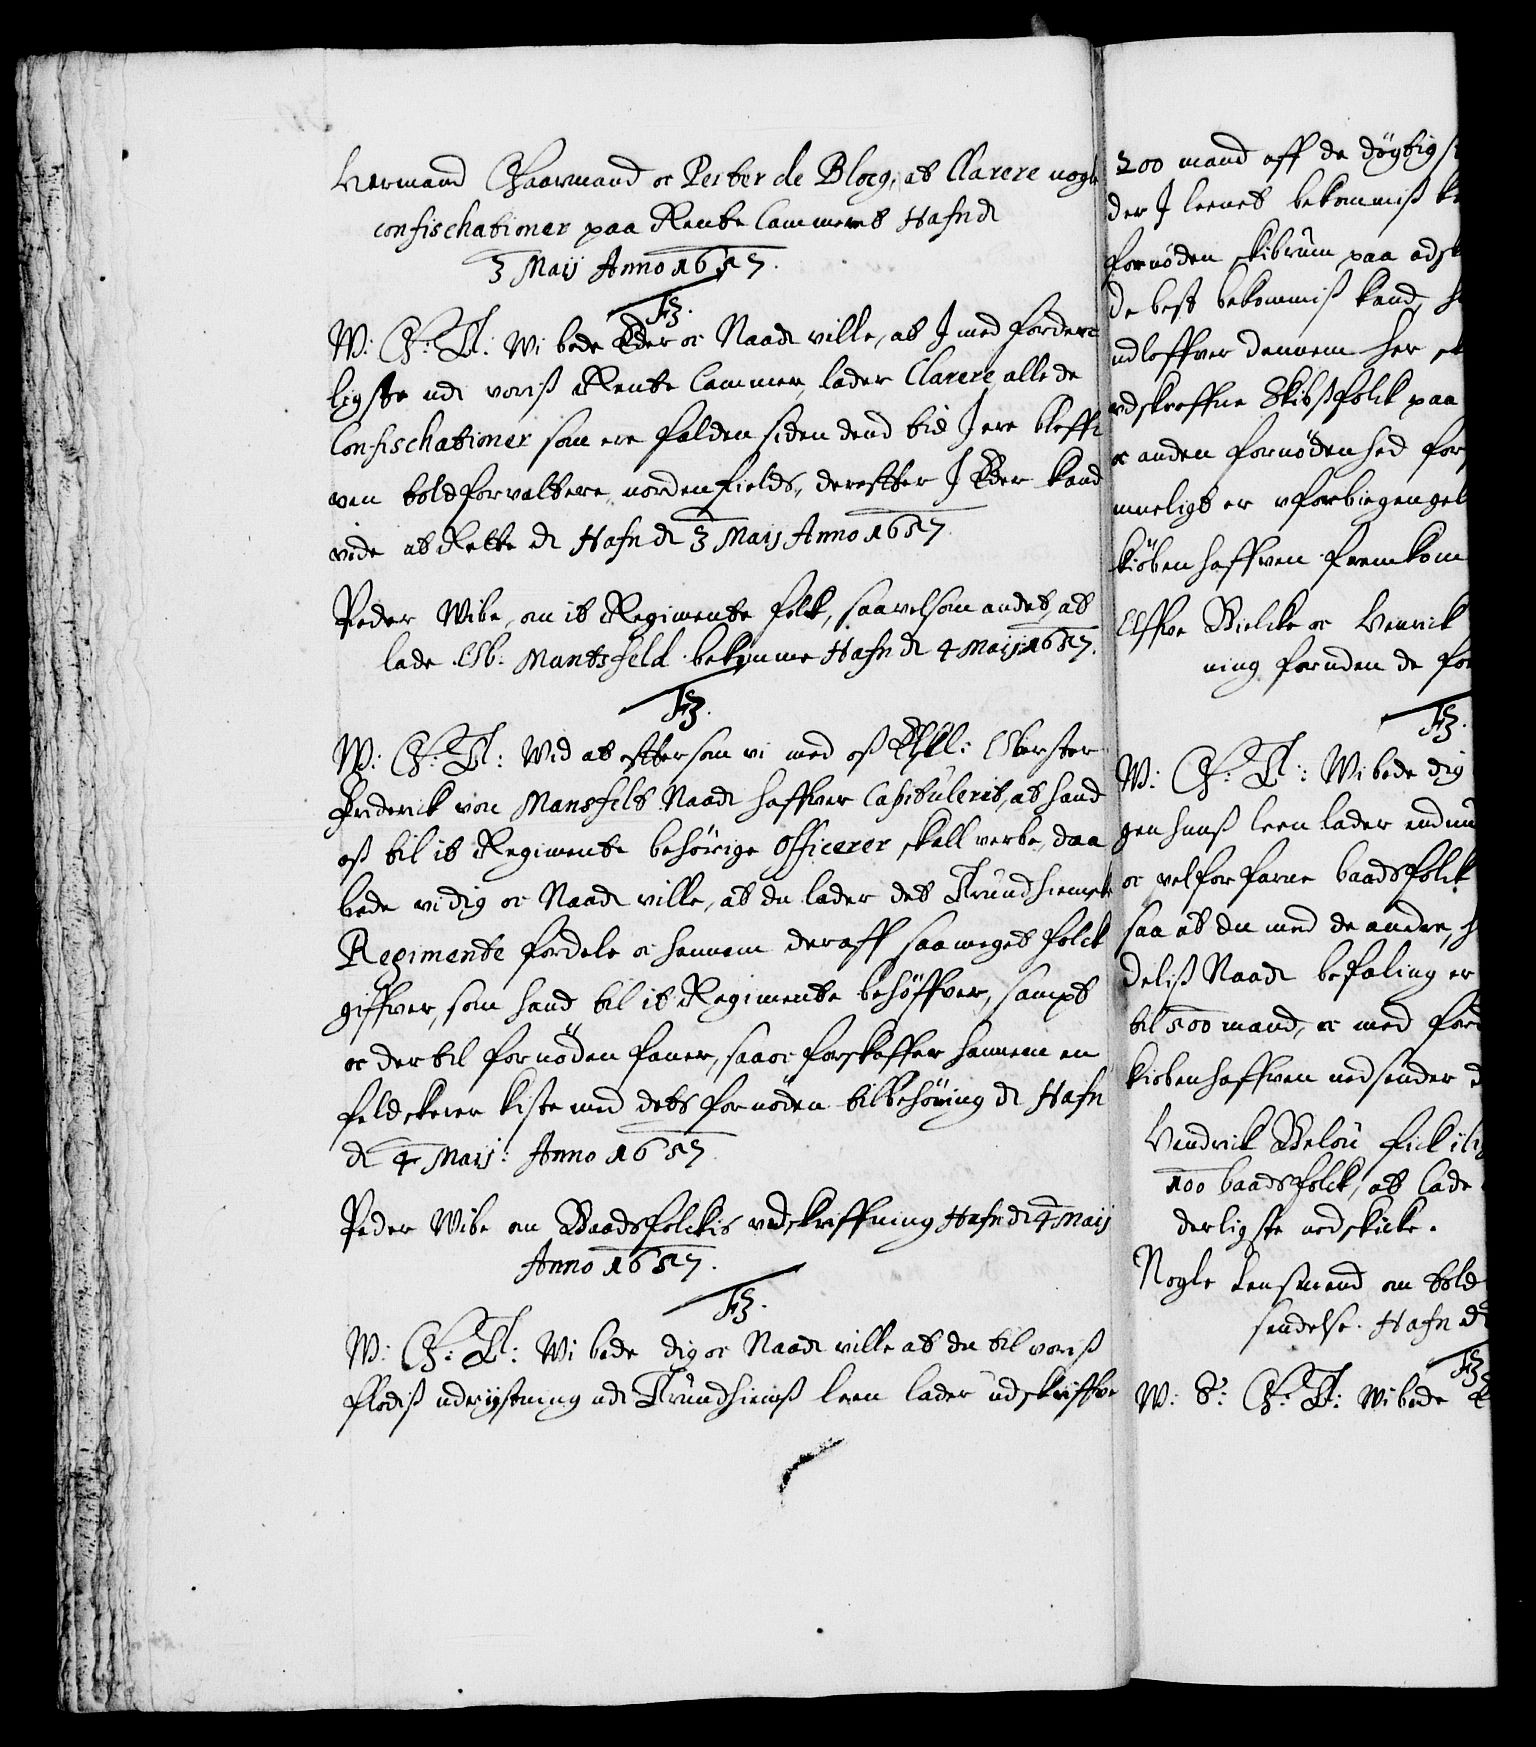 Hermand Gaarmand oc Peiter de Block, at Clarere nogle
confischationer paa Rente Cammeret Hafn d.
3 Maij Anno 1657.
F3.
W: G: T: Wi bede Eder oc Naad: ville, at I med forderc
ligste udi voris Rente Cammer, lader Clarere alle de
Confischationer som ere falden siden dend tid I ere bleff
ven toldforvaltere nordenfields, derefter I Eder kand
vide at Rette d. Hafn d. 3 Maij Anno 1657
Peder Wibe, om it Regimente folk, saavelsom andet, at
lade Ob: Mantzfeld bekomme Hafn d. 4 Maij 1657.
F3.
W: G: T: Wid at eftersom vi med oss Elskl: Oberster
Friderich von Mansfelt Naad: haffver Capitulerit, at hand
oss til it Regimente behørige Officerer skall verbe, daa
bede vi dig oc Naad: ville, at du lader det Trundhiemske
Regimente fordele oc hannem deraff saameget folck
giffver, som hand til it Regimente behöffver, sampt
oc der til fornöden faner, saa oc forskaffer hannem en
feldskerer kiste med dets fornöden tilbehöring d. Hafn
d. 4 Maij: Anno 1657
Peder Wibe om Baadsfolckis udskriffning Hafn d. 4 Maij
Anno 1657.
F3.
W: G: T: Wi bede dig oc Naad: ville at du til voris
flodis udrystning udi Trundhiems leen lader udskriffve
200 mand aff de døgtigs
der I leenet bekommis k
fornøden skibrum paa adsk
de best bekommis kand, h
udloffver dennem her
udskreffne Skibsfolck paa
oc anden fornödenhed for
mueligt er uforbiegengel
kiöbenhaffven fremkom
Offve Bielcke oc Henrick
ning foruden de for
F3.
W: G: T: Wi bede dig
gen huus leen lader endnu
oc velforfarne baadsfolck
saa at du med de andre, h
delis Naad: befaling er
til 500 mand, oc med ford
kiobenhaffven nedsender d
Hendrick Below fick ili
100 baadsfolck, at lade
derligste nedskicke.
Nogle Lensmend om told
sendelse. Hafn d.
F3
W: S: G: T: Wi bede E